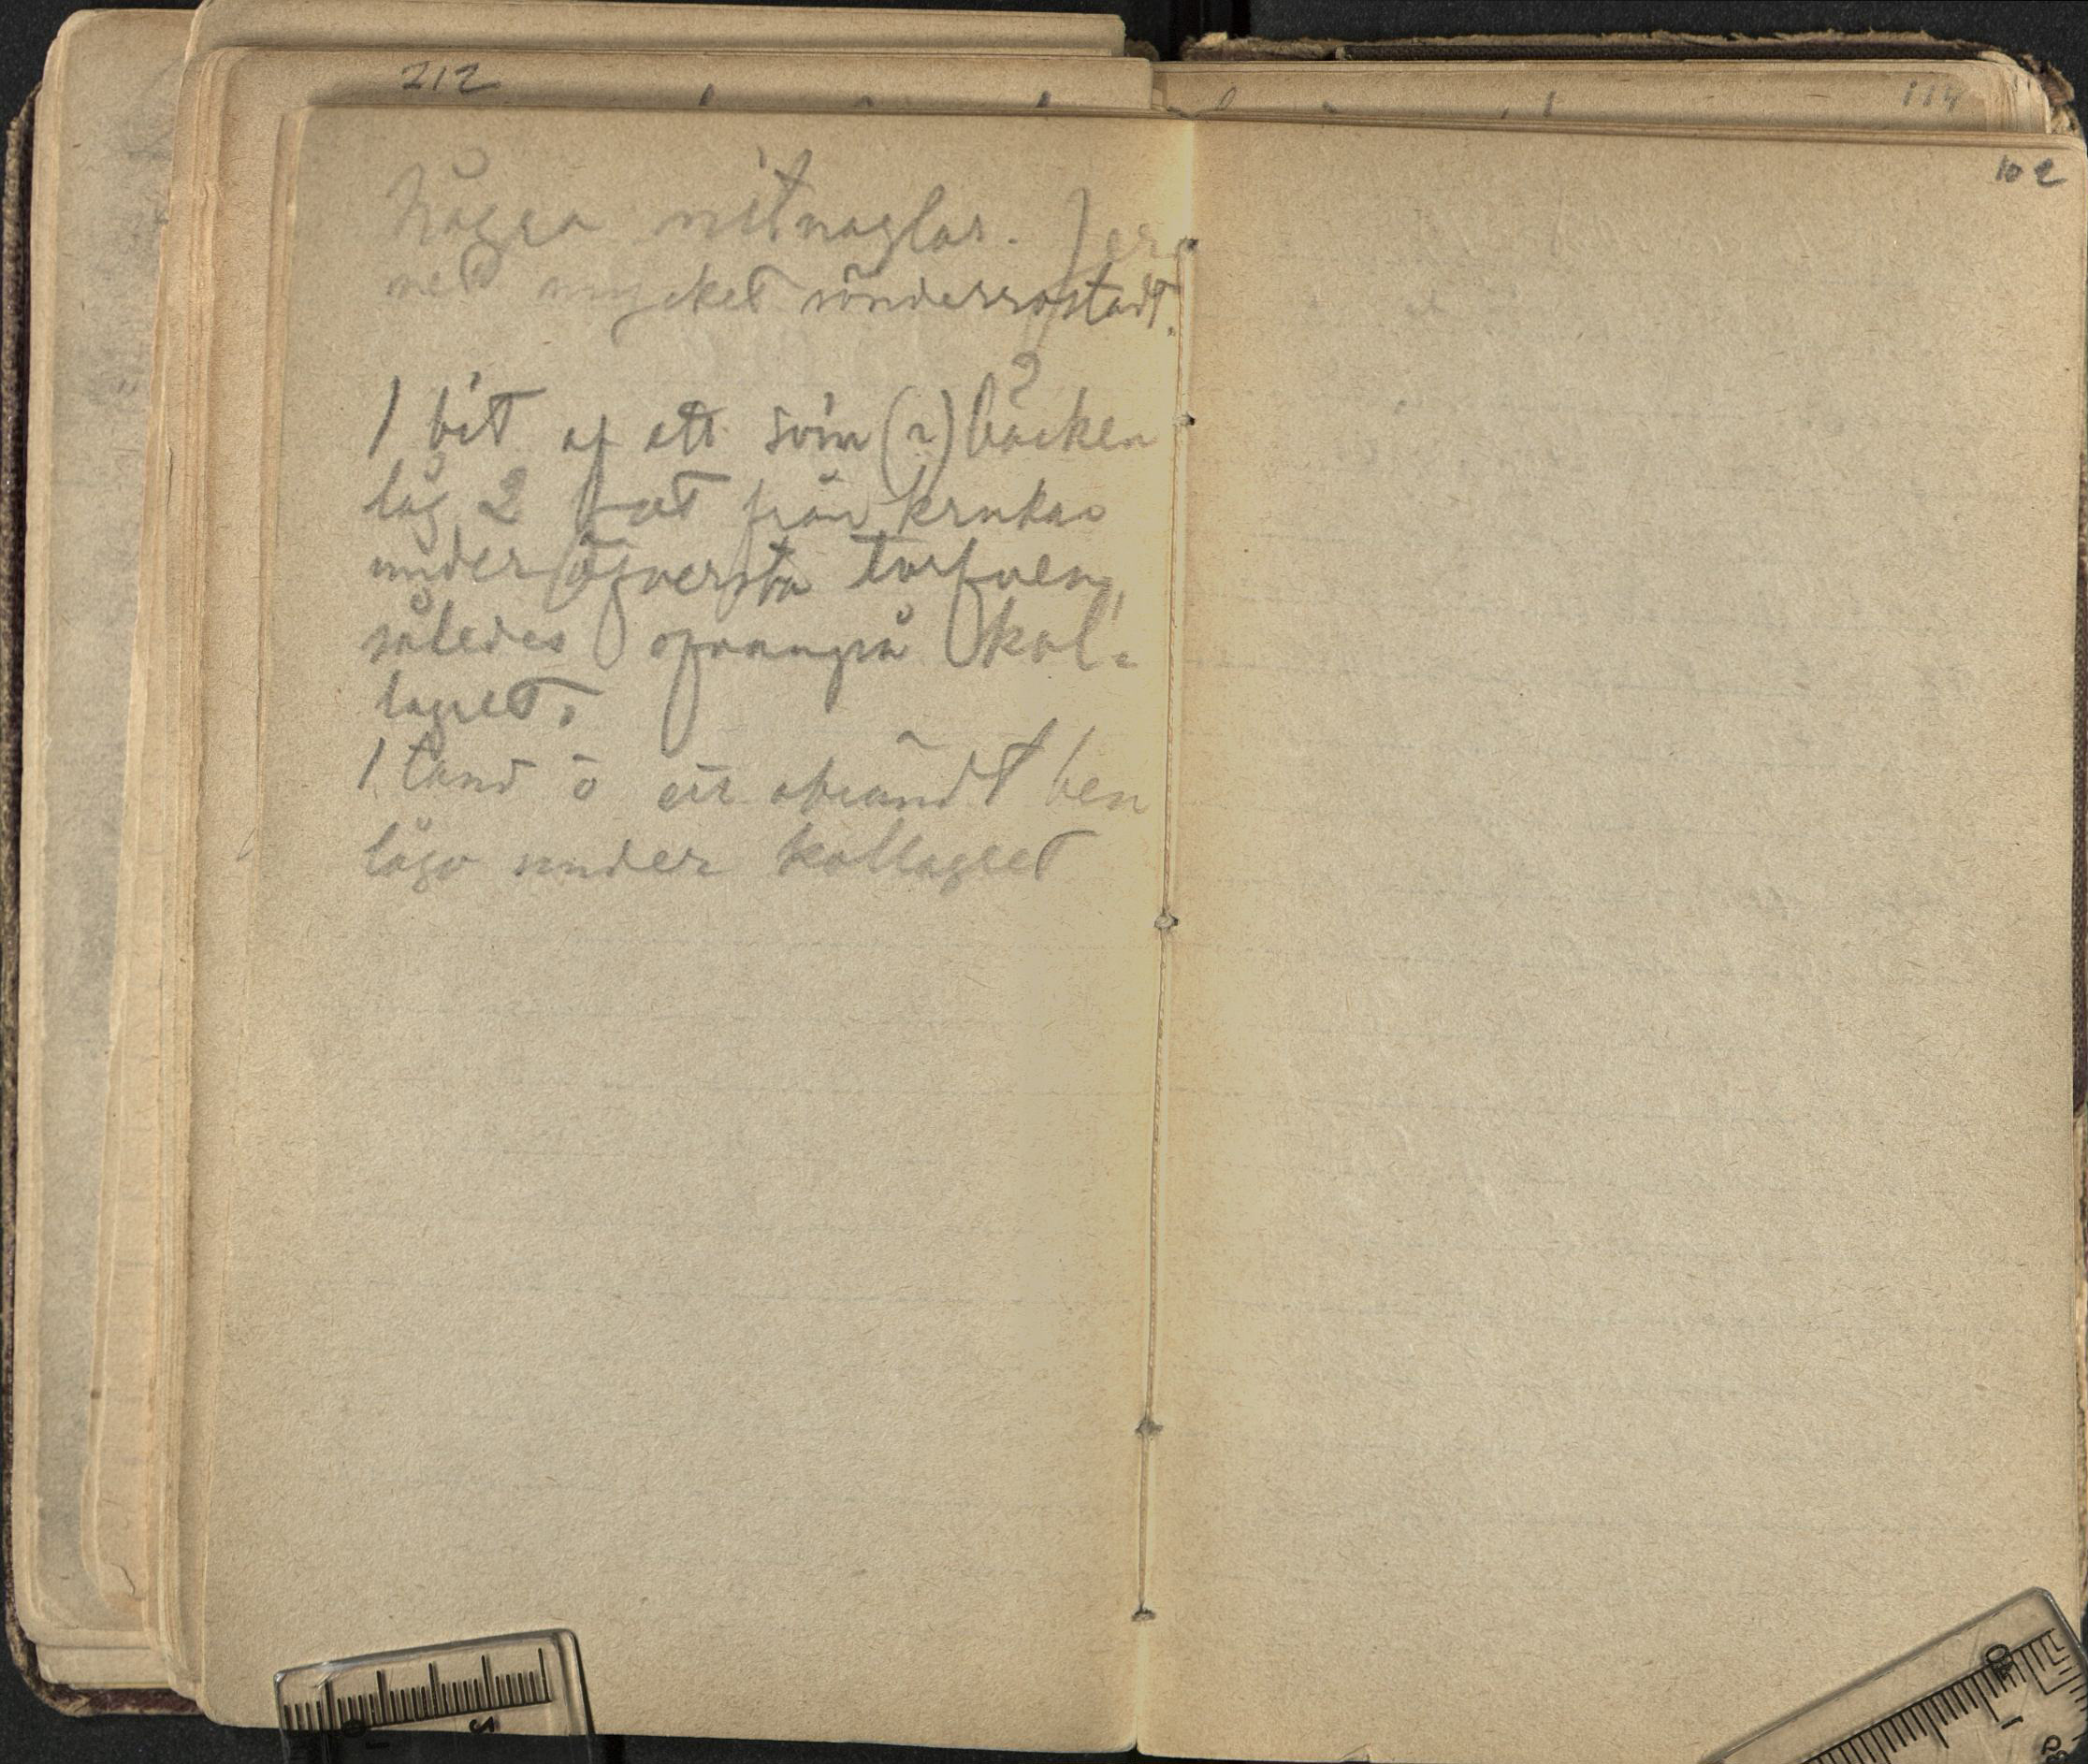 212
114
102
Några nitnaglar. Jer
net mycket sönderrostadt.
1 bit af ett söm(?)bäcken
låg 2 fot från krukan
under öfversta torfven,
således ofvanpå kol-
lagret.
1 tand o ett obrändt ben
lågo under kollagret